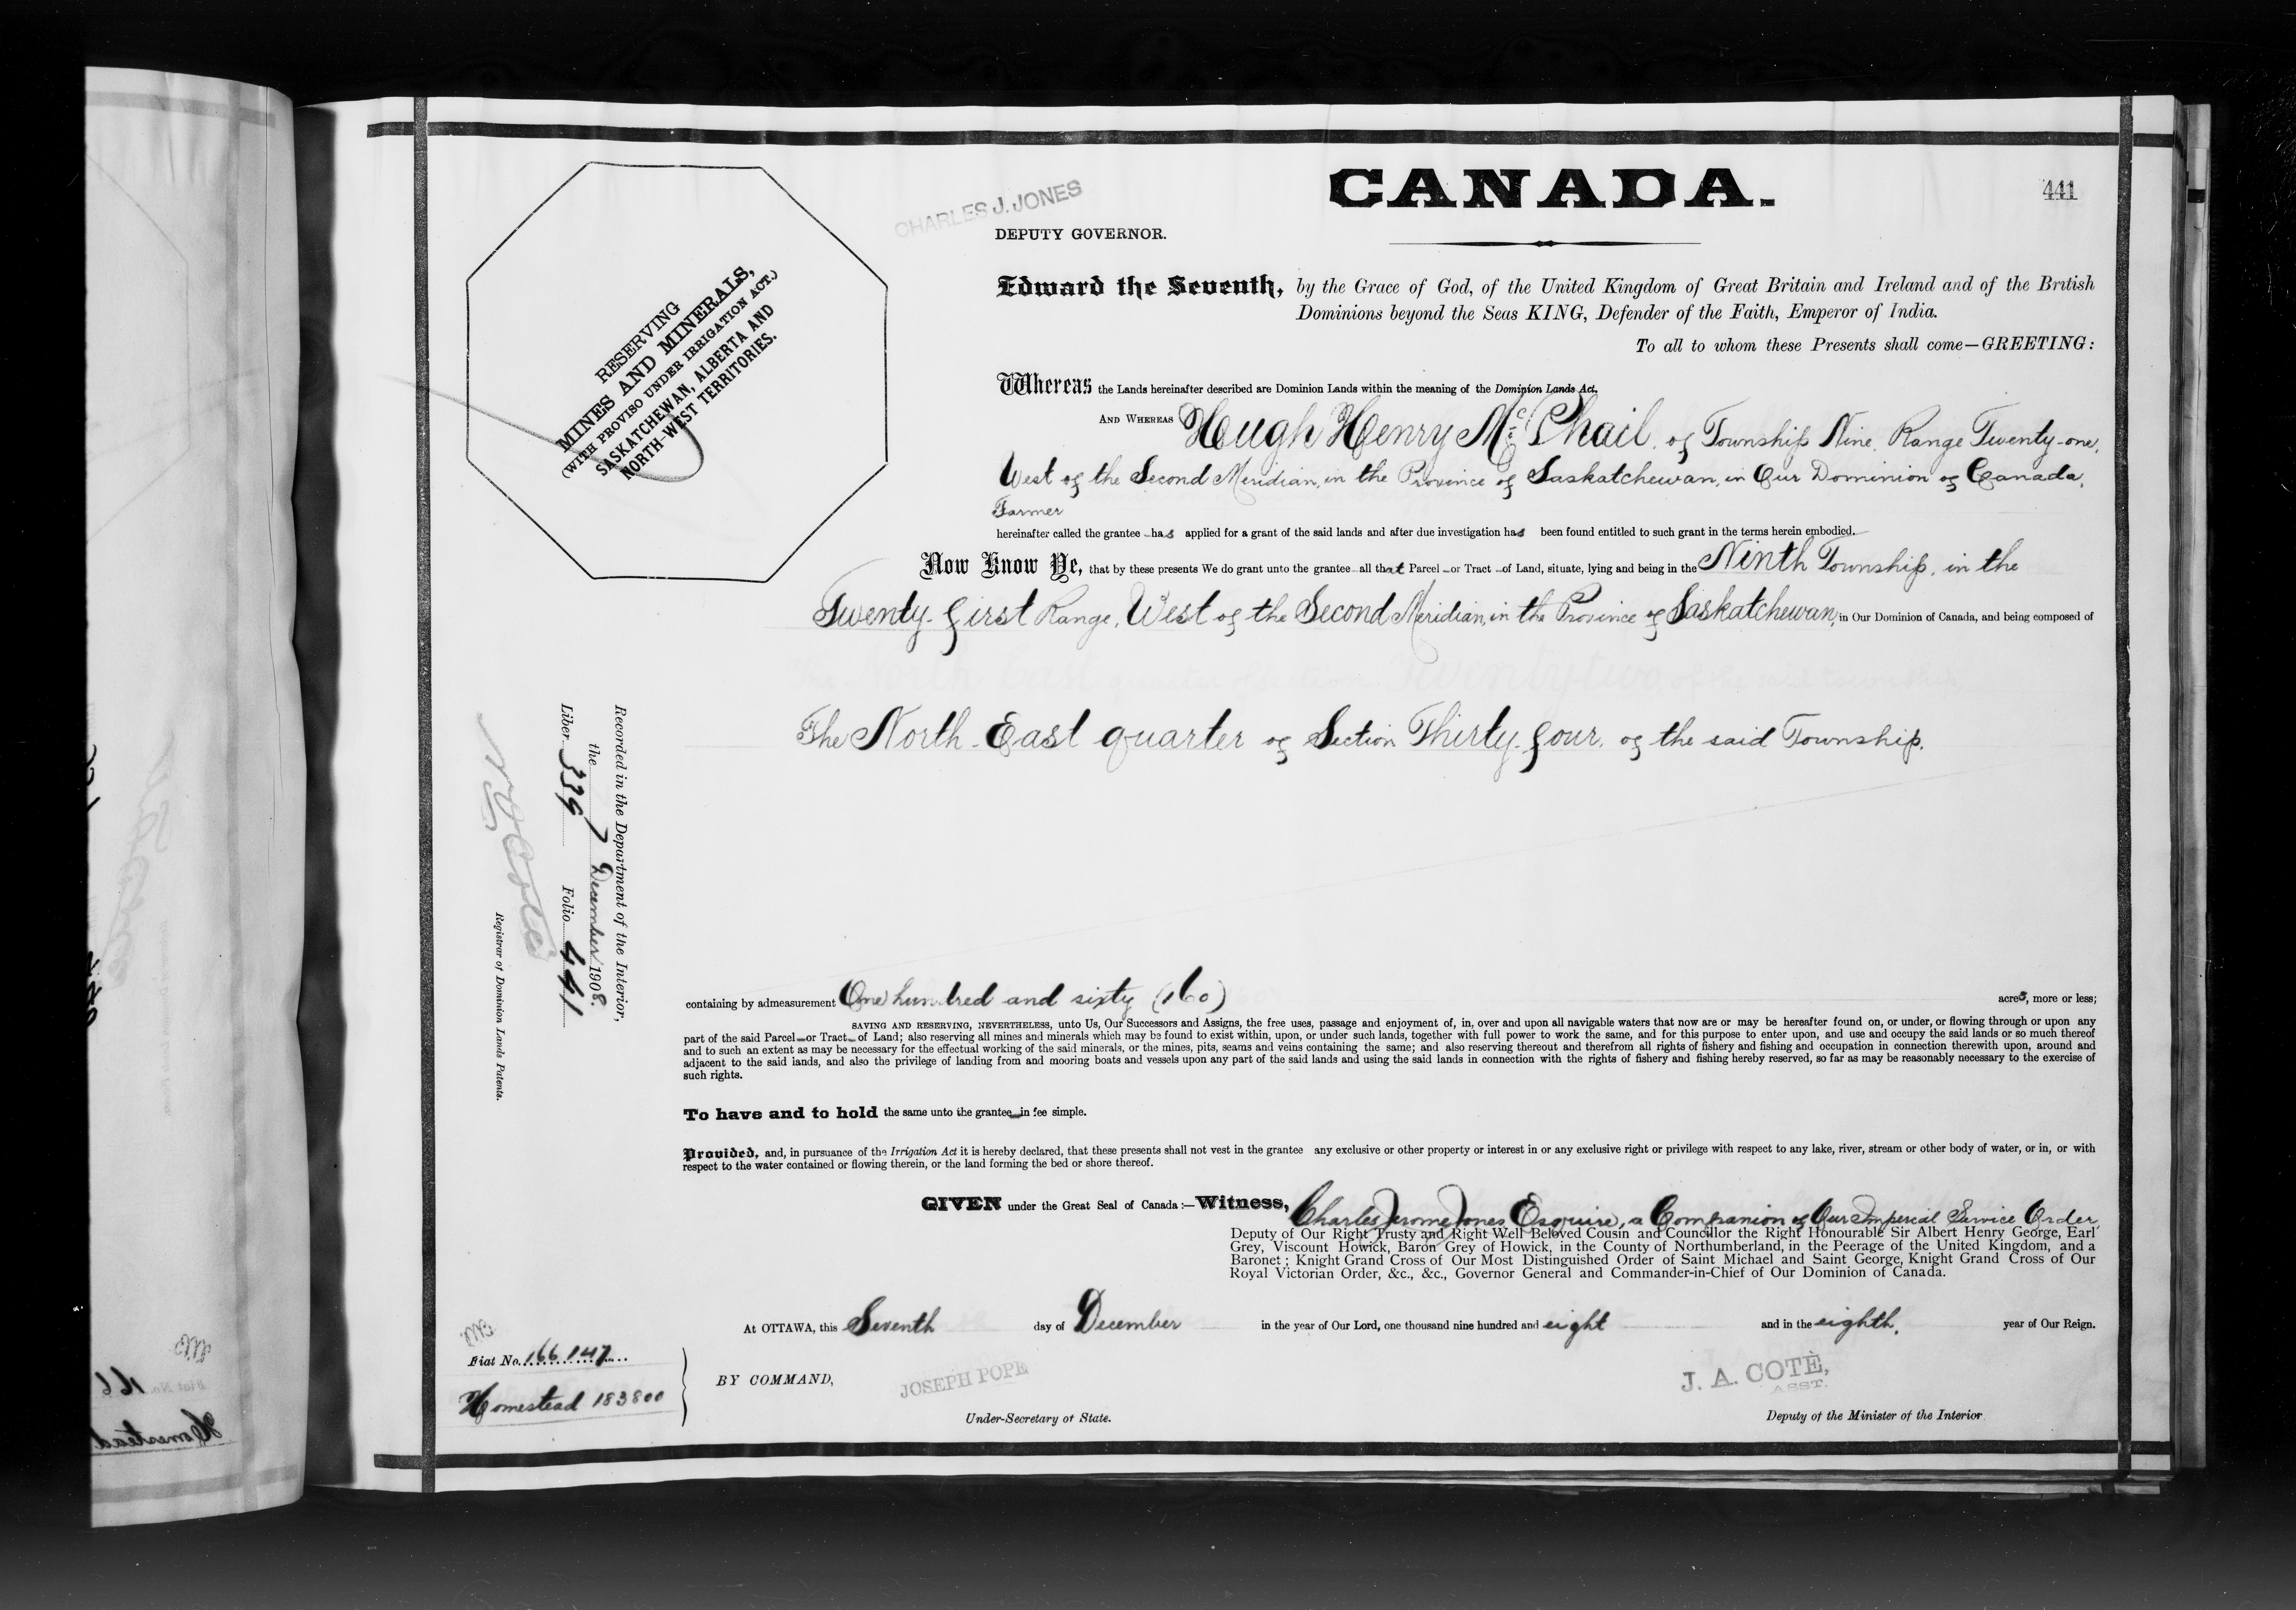 CANADA.
441
CHARLES J. JONES
DEPUTY GOVERNOR.
RESERVING
MINES AND MINERALS,
(WITH PROVISO UNDER IRRIGATION ACT.)
SASKATCHEWAN, ALBERTA AND
NORTH-WEST TERRITORIES.
Edward the Seventh, by the Grace of God, of the United Kingdom of Great Britain and Ireland and of the British
Dominions beyond the Seas KING, Defender of the Faith, Emperor of India.
To all to whom these Presents shall come—GREETING:
Whereas the Lands hereinafter described are Dominion Lands within the meaning of the Dominion Lands Act.
AND WHEREAS Hugh Henry McPhail, of Township Nine, Range Twenty-one,
West of the Second Meridian, in the Province of Saskatchewan, in Our Dominion of Canada,
Farmer
hereinafter called the grantee has applied for a grant of the said lands and after due investigation has been found entitled to such grant in the terms herein embodied.
Now Know Ye, that by these presents We do grant unto the grantee all that Parcel or Tract of Land, situate, lying and being in the Ninth Township, in the
Twenty-first Range, West of the Second Meridian, in the Province of Saskatchewan, in Our Dominion of Canada, and being composed of
The North East quarter of Section Thirty-four, of the said Township.
Recorded in the Department of the Interior,
the 7 December 1908.
Liber 339 Folio 441
Registrar of Dominion Lands Patents.
containing by admeasurement One hundred and sixty (160) acres, more or less;
SAVING AND RESERVING, NEVERTHELESS, unto Us, Our Successors and Assigns, the free uses, passage and enjoyment of, in, over and upon all navigable waters that now are or may be hereafter found on, or under, or flowing through or upon any
part of the said Parcel or Tract of Land; also reserving all mines and minerals which may be found to exist within, upon, or under such lands, together with full power to work the same, and for this purpose to enter upon, and use and occupy the said lands or so much thereof
and to such an extent as may be necessary for the effectual working of the said minerals, or the mines, pits, seams and veins containing the same; and also reserving thereout and therefrom all rights of fishery and fishing and occupation in connection therewith upon, around and
adjacent to the said lands, and also the privilege of landing from and mooring boats and vessels upon any part of the said lands and using the said lands in connection with the rights of fishery and fishing hereby reserved, so far as may be reasonably necessary to the exercise of
such rights.
To have and to hold the same unto the grantee in fee simple.
Provided, and, in pursuance of the Irrigation Act it is hereby declared, that these presents shall not vest in the grantee any exclusive or other property or interest in or any exclusive right or privilege with respect to any lake, river, stream or other body of water, or in, or with
respect to the water contained or flowing therein, or the land forming the bed or shore thereof.
GIVEN under the Great Seal of Canada:—Witness, Charles Jerome Jones Esquire, a Companion of Our Imperial Service Order,
Deputy of Our Right Trusty and Right Well Beloved Cousin and Councillor the Right Honourable Sir Albert Henry George, Earl
Grey, Viscount Howick, Baron Grey of Howick, in the County of Northumberland, in the Peerage of the United Kingdom, and a
Baronet; Knight Grand Cross of Our Most Distinguished Order of Saint Michael and Saint George, Knight Grand Cross of Our
Royal Victorian Order, &c., &c., Governor General and Commander-in-Chief of Our Dominion of Canada.
At OTTAWA, this Seventh day of December in the year of Our Lord, one thousand nine hundred and eight and in the eighth, year of Our Reign.
Fiat No. 166147
Homestead 183800
BY COMMAND,
JOSEPH POPE
Under-Secretary of State.
J. A. COTÈ,
ASST.
Deputy of the Minister of the Interior